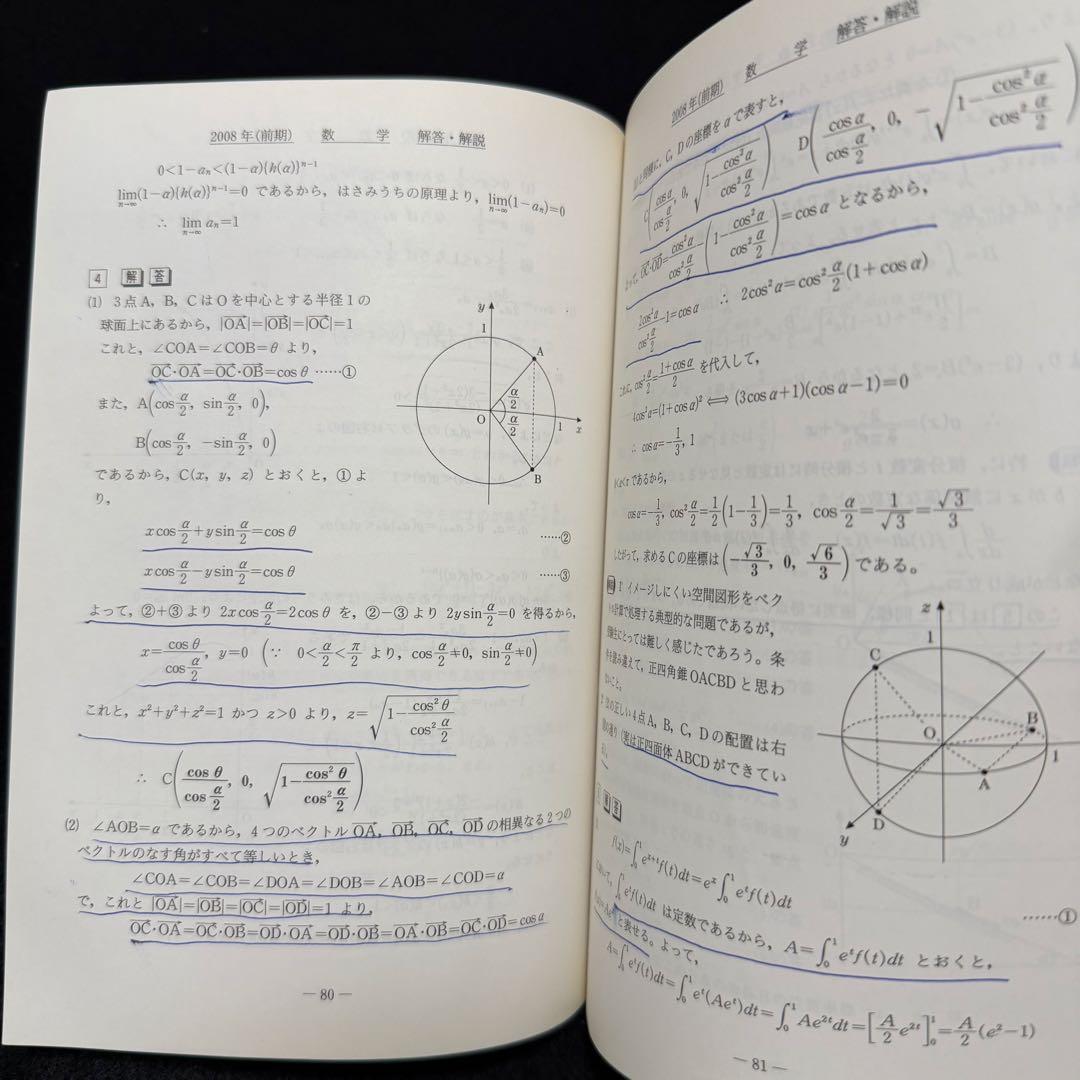 2008年(前期) 数 学 解答・解説
0<1−aₙ<(1−α){h(α)}ⁿ⁻¹
lim(n→∞)(1−α){h(α)}ⁿ⁻¹=0 であるから，はさみうちの原理より，lim(n→∞)(1−aₙ)=0
∴ lim(n→∞) aₙ=1
4 解 答
(1) 3点A，B，CはOを中心とする半径1の
球面上にあるから，|OA|=|OB|=|OC|=1
これと，∠COA=∠COB=θ より，
OC・OA=OC・OB=cosθ ……①
また，A(cos α/2，sin α/2，0)，
B(cos α/2，−sin α/2，0)
であるから，C(x，y，z) とおくと，①よ
り，
x cos α/2 + y sin α/2 = cosθ ……②
x cos α/2 − y sin α/2 = cosθ ……③
よって，②+③より 2x cos α/2 = 2cosθ を，②−③より 2y sin α/2 = 0 を得るから，
x = cosθ/cos α/2，y=0 (∵ 0< α/2 < π/2 より，cos α/2 ≠0，sin α/2 ≠0)
これと，x²+y²+z²=1 かつ z>0 より，z=√(1− cos²θ/cos² α/2)
∴ C(cosθ/cos α/2，0，√(1− cos²θ/cos² α/2))
(2) ∠AOB=α であるから，4つのベクトル OA，OB，OC，OD の相異なる2つの
ベクトルのなす角がすべて等しいとき，
∠COA=∠COB=∠DOA=∠DOB=∠AOB=∠COD=α
で，これと |OA|=|OB|=|OC|=|OD|=1 より，
OC・OA=OC・OB=OD・OA=OD・OB=OA・OB=OC・OD=cosα
y
1
A
α/2
α/2
O
1
x
B
― 80 ―
2008年(前期) 数 学 解答・解説
と同様に，C，Dの座標をαで表すと，
C(cosα/cos α/2，0，√(1− cos²α/cos² α/2)) D(cosα/cos α/2，0，−√(1− cos²α/cos² α/2))
よって，OC・OD= cos²α/cos² α/2 −(1− cos²α/cos² α/2)=cosα となるから，
2cos²α/cos² α/2 −1=cosα ∴ 2cos²α=cos² α/2 (1+cosα)
これに，cos² α/2 = (1+cosα)/2 を代入して，
4cos²α=(1+cosα)² ⟺ (3cosα+1)(cosα−1)=0
∴ cosα=− 1/3，1
0<α<π であるから，
cosα=− 1/3，cos² α/2 = 1/2 (1− 1/3)= 1/3，cos α/2 = 1/√3 = √3/3
したがって，求めるCの座標は (− √3/3，0，√6/3) である。
1 イメージしにくい空間図形をベク
計算で処理する典型的な問題であるが，
受験生にとっては難しく感じたであろう。条
件を読み違えて，正四角錐OACBDと思わ
ないこと。
2 の正しい4点A，B，C，Dの配置は右
図の通り (実は正四面体ABCDができてい
z
1
C
O
B
1
A
D
y
解 答
f(x)=∫₀¹eˣ⁺ᵗf(t)dt=eˣ∫₀¹eᵗf(t)dt
∫₀¹eᵗf(t)dt は定数であるから，A=∫₀¹eᵗf(t)dt とおくと， ……①
と表せる。よって，
A=∫₀¹eᵗf(t)dt=∫₀¹eᵗ(Aeᵗ)dt=∫₀¹Ae²ᵗdt=[A/2 e²ᵗ]₀¹= A/2 (e²−1)
― 81 ―